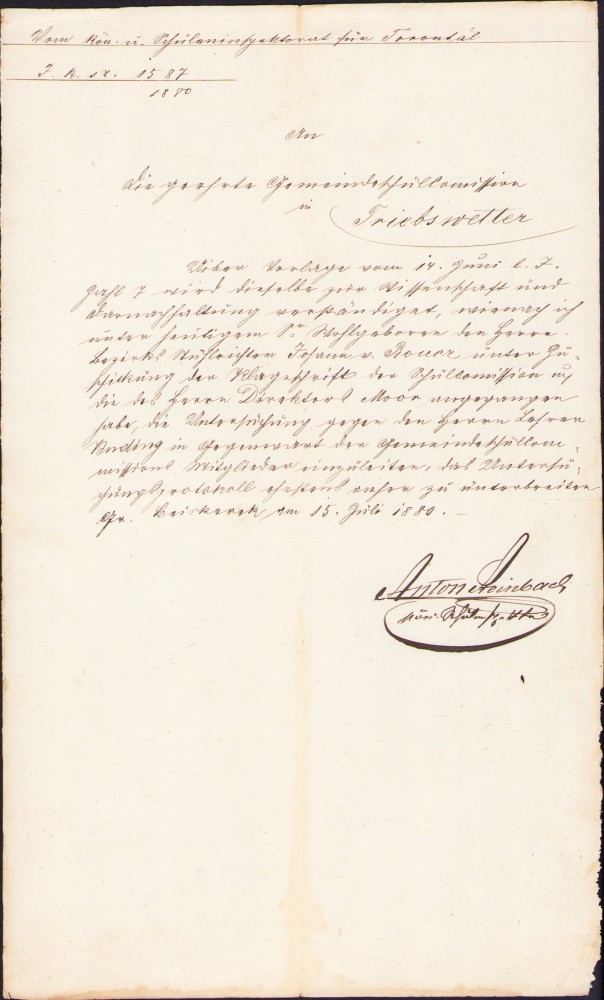 Vom kön. u. Schuleninspektorat für Torontál
Z. k. sr. 1587
1880
An
die geehrte Gemeindeschulcomission
in Triebswetter
Uiber Vorlage vom 14. Juni l. J.
Zahl 7 wird dieselbe zur Wissenschaft und
Darnachhaltung verständiget, wienach ich
unter heutigem Sr Wohlgeboren den Herrn
Bezirks Stuhlrichter Johann v. unter Zu-
schickung der Klageschrift der Schulcomission und
die des Herrn Direktors Moor angegangen
habe, die Untersuchung gegen den Herrn Lehrer
in Gegenwart der Gemeindeschulcom-
missions Mitglieder einzuleiten, das Untersu-
chungsprotokoll ehestens anher zu unterbreiten
Gr. Beckerek, am 15. Juli 1880.
Anton
kön. Schulinspektor